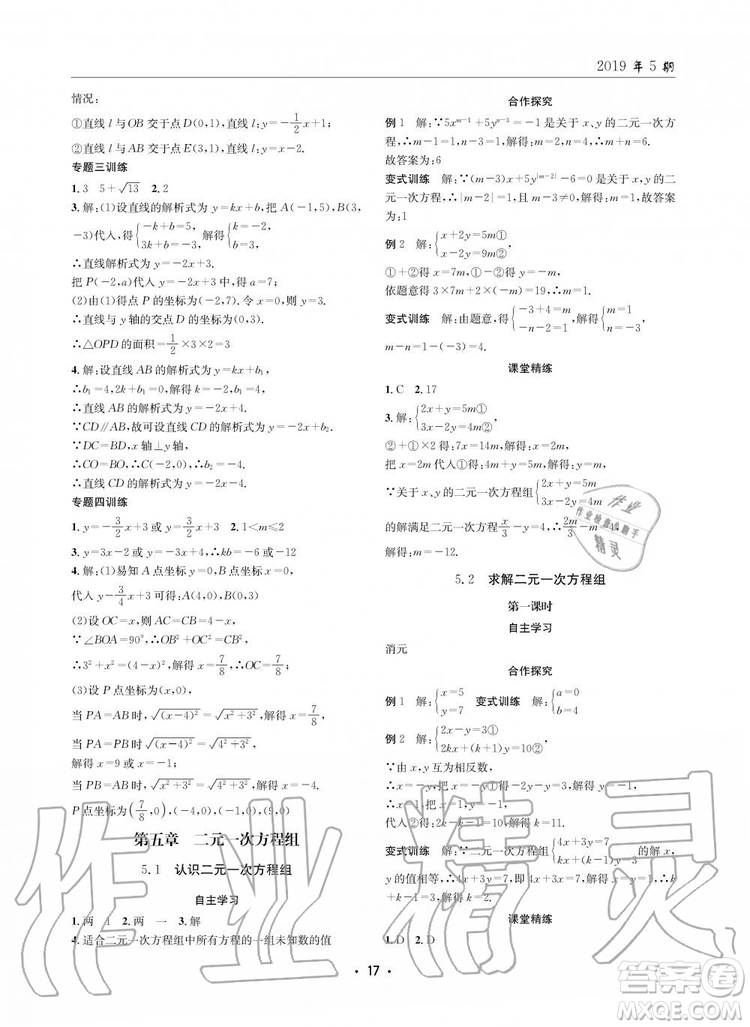 2019 年 5 期
情况：
①直线 l 与 OB 交于点 D(0,1),直线 l:y=-1/2x+1；
②直线 l 与 AB 交于点 E(3,1),直线 l:y=-x+4.
专题三训练
1. 3 5+√13 2. 2
3. 解:(1)设直线的解析式为 y=kx+b,把 A(-1,5),B(3,
-3)代入,得{-k+b=5, 3k+b=-3 解得{k=-2 b=3,
∴直线解析式为 y=-2x+3.
把 P(-2,a)代入得 a=7;
(2)由(1)得点 P 的坐标为(-2,7).令 x=0,则 y=3,
∴直线与 y 轴的交点 D 的坐标为(0,3),
∴△OPD 的面积=1/2×3×2=3
4. 解:设直线 AB 的解析式为 y=kx+b₁,
∴b₁=4,2k+b₁=0,解得 k=-2,b₁=4,
∴直线 AB 的解析式为 y=-2x+4.
∵CD∥AB,故可设直线 CD 的解析式为 y=-2x+b.
∵DC=BD,x 轴⊥y 轴,
∴CO=BO=4,∴C(0,-4),∴b=-4,
∴直线 CD 的解析式为 y=-2x-4.
专题四训练
1. y=-3/2x+3或 y=3/2x+3 2. 1<m≤2
3. y=3x-2 或 y=-3x+7,kb=-6 或 kb=-12
4. 解:(1)易知 A 点坐标(4,0),B 点坐标(0,3),
代入 y=-3/4x+3 可得:A(4,0),B(0,3)
(2)设 OC=x,则 AC=CB=4-x,
∵∠BOA=90°,∴OB²+OC²=CB²,
∴3²+x²=(4-x)²,解得 x=7/8,∴OC=7/8
(3)设 P 点坐标为(x,0),
当 PA=PB 时,√(x-4)²=√x²+3²,解得 x=7/8,
当 PA=AB 时,√(x-4)²=√4²+3²,
解得 x=9 或 x=-1
当 PB=AB 时,√x²+3²=√4²+3²,解得 x=-4.
P 点坐标为(7/8,0),(-4,0),(-1,0),(9,0)
第五章 二元一次方程组
5.1 认识二元一次方程组
自主学习
1. 两 1 2. 两 一 3. 解
4. 适合二元一次方程组中所有方程的一组未知数的值
合作探究
例 1 解:∵5x^{m-1}+5y^{n-3}=-1 是关于 x、y 的二元一次方
程,∴m-1=1,n-3=1,解得:m=2,n=4,∴m+n=6.
故答案为:6
变式训练 解:∵(m-3)x+5y^{|m-2|}=-6 是关于 x、y 的二
元一次方程,∴|m-2|=1,且 m-3≠0,解得:m=1,故答案
为:1
例 2 解:{x+2y=5m① x-2y=9m②,
①+②得 x=7m,①-②得 y=-m,
依题意得 3×7m+2×(-m)=19,∴m=1.
变式训练 解:由题意,得{-3+4=m -n-2=1,解得{m=1 n=-3.
m-n=1-(-3)=4.
课堂精练
1. C 2. 17
3. 解:{2x+y=5m① 3x-2y=4m②
②+①×2 得:7x=14m,解得:x=2m,
把 x=2m 代入①得:y=m,
∵关于 x、y 的二元一次方程组{2x+y=5m 3x-2y=4m
的解满足二元一次方程x/3-y=-4,∴2m/3-m=-4,
解得:m=12.
5.2 求解二元一次方程组
第一课时
自主学习
消元
合作探究
例 1 解:{x=5 y=7 变式训练 解:{a=0 b=0
例 2 解:{2x-y=3① 2kx+(k+1)y=10②,
∵由题意,得 x=y,
∴由①得,x=3,∴y=3,
将 x=3,y=3 代入②得,6k+3(k+1)=10,
∴k=7/9
变式训练 解:∵二元一次方程组{4x+3y=7 kx+(k-1)y=3的解 x、
y 的值相等,∴{4x+3x=7 kx+(k-1)x=3,解得{x=1 k=2
课堂精练
1. D 2. D
17
作业精灵
作业
作业检查小助手
精灵
答案圈
MXQE.COM